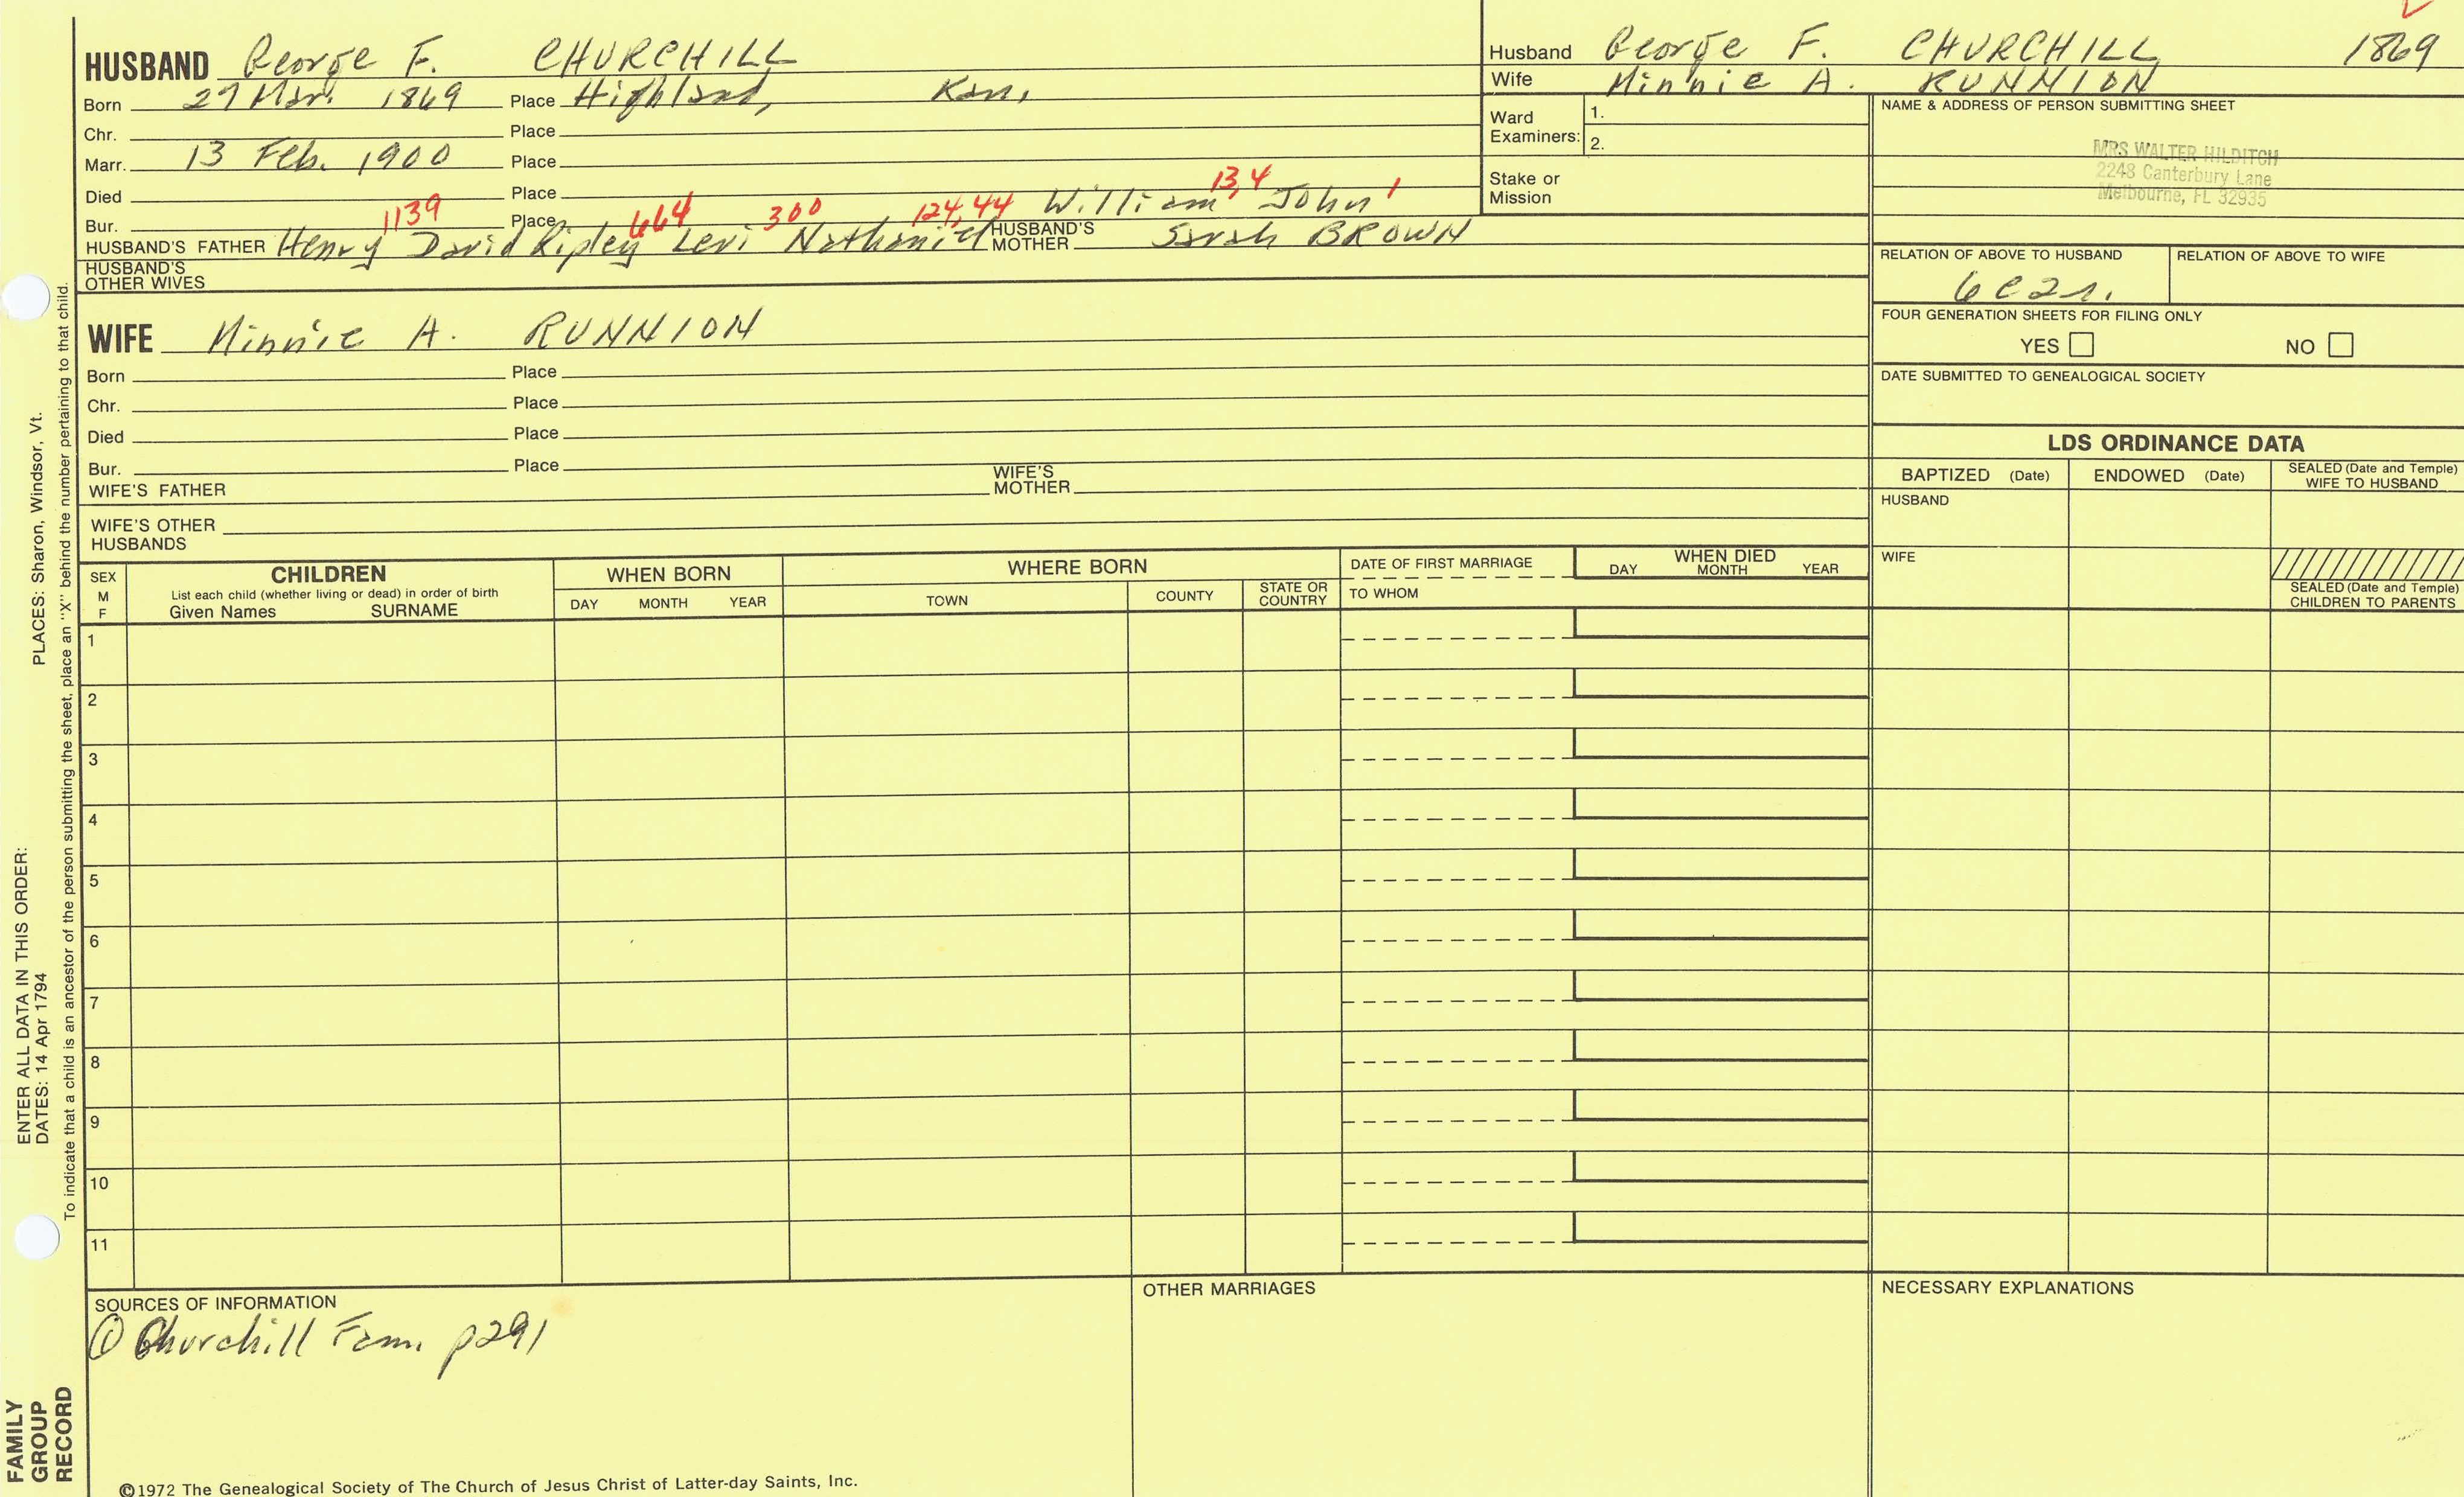 HUSBAND George F. CHURCHILL
Born 27 Mar. 1869 Place Highland, Kan.
Chr. Place
Marr. 13 Feb. 1900 Place
Died Place
Bur. Place
1139 664 300 124,44 William 13,4 John 1
HUSBAND'S FATHER Henry David Ripley Levi Nathaniel HUSBAND'S MOTHER Sarah BROWN
HUSBAND'S OTHER WIVES
Husband George F. CHURCHILL 1869
Wife Minnie A. RUNNION
Ward Examiners: 1.
2.
Stake or Mission
NAME & ADDRESS OF PERSON SUBMITTING SHEET
MRS WALTER HILDITCH
2248 Canterbury Lane
Melbourne, FL 32935
RELATION OF ABOVE TO HUSBAND RELATION OF ABOVE TO WIFE
6C2r.
FOUR GENERATION SHEETS FOR FILING ONLY
YES NO
DATE SUBMITTED TO GENEALOGICAL SOCIETY
WIFE Minnie A. RUNNION
Born Place
Chr. Place
Died Place
Bur. Place
WIFE'S FATHER WIFE'S MOTHER
WIFE'S OTHER HUSBANDS
LDS ORDINANCE DATA
BAPTIZED (Date) ENDOWED (Date) SEALED (Date and Temple) WIFE TO HUSBAND
HUSBAND
WIFE
SEALED (Date and Temple) CHILDREN TO PARENTS
SEX M F
CHILDREN
List each child (whether living or dead) in order of birth
Given Names SURNAME
WHEN BORN
DAY MONTH YEAR
WHERE BORN
TOWN COUNTY STATE OR COUNTRY
DATE OF FIRST MARRIAGE
TO WHOM
WHEN DIED
DAY MONTH YEAR
1
2
3
4
5
6
7
8
9
10
11
SOURCES OF INFORMATION
① Churchill Fam. p291
OTHER MARRIAGES
NECESSARY EXPLANATIONS
©1972 The Genealogical Society of The Church of Jesus Christ of Latter-day Saints, Inc.
FAMILY GROUP RECORD
ENTER ALL DATA IN THIS ORDER:
DATES: 14 Apr 1794 PLACES: Sharon, Windsor, Vt.
To indicate that a child is an ancestor of the person submitting the sheet, place an "X" behind the number pertaining to that child.